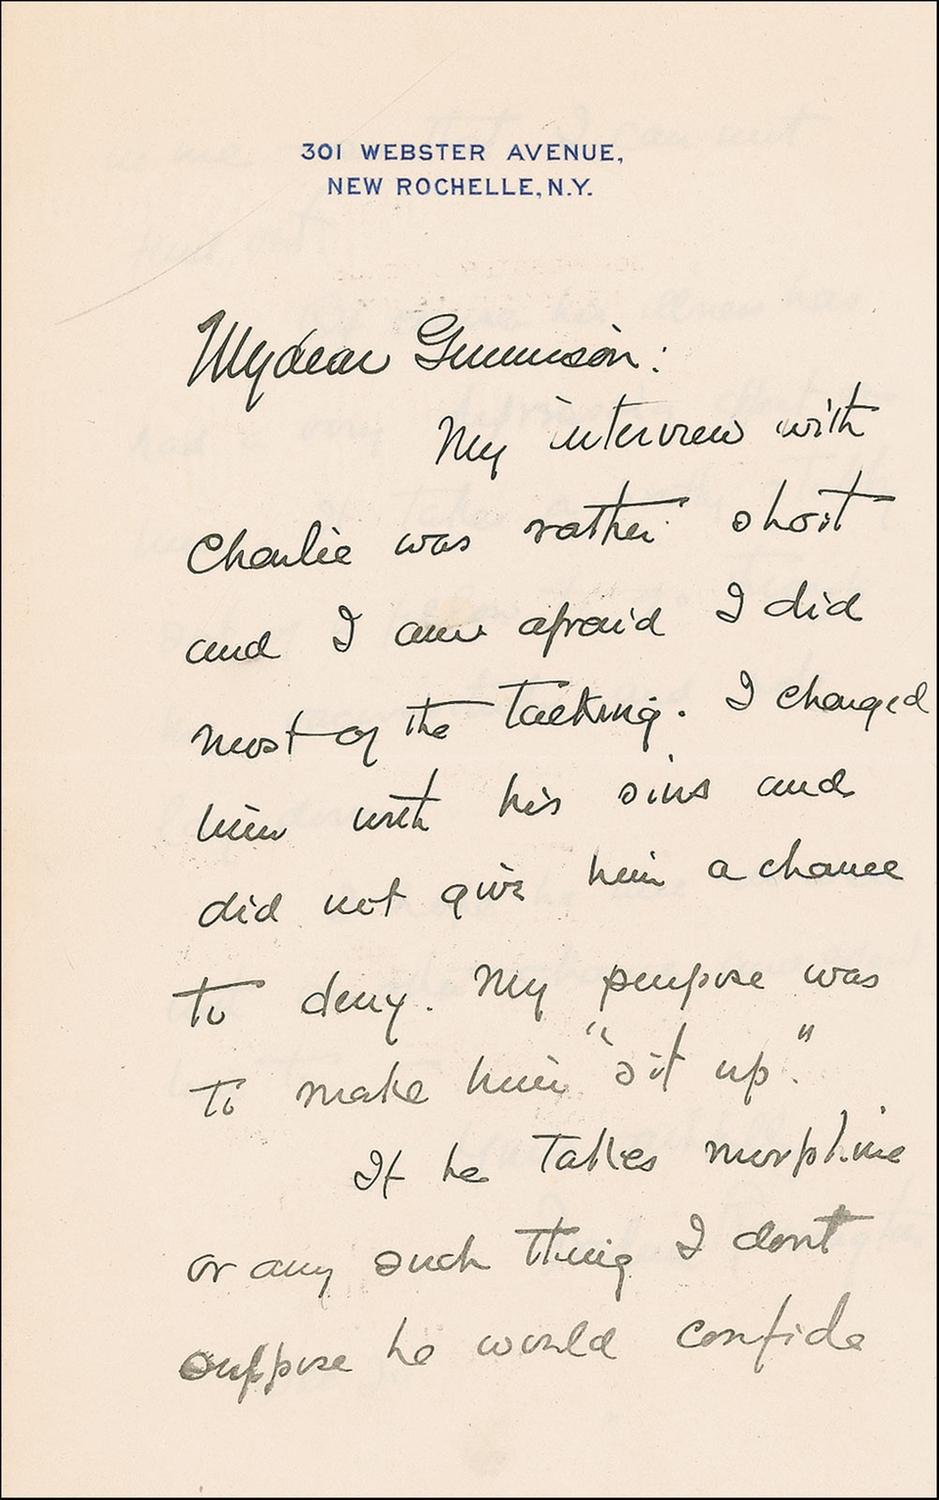 301 WEBSTER AVENUE,
NEW ROCHELLE, N.Y.
My dear Gunnison:
My interview with
Charlie was rather short
and I am afraid I did
most of the talking. I charged
him with his sins and
did not give him a chance
to deny. My purpose was
to make him "sit up".
If he takes morphine
or any such thing I dont
suppose he would confide